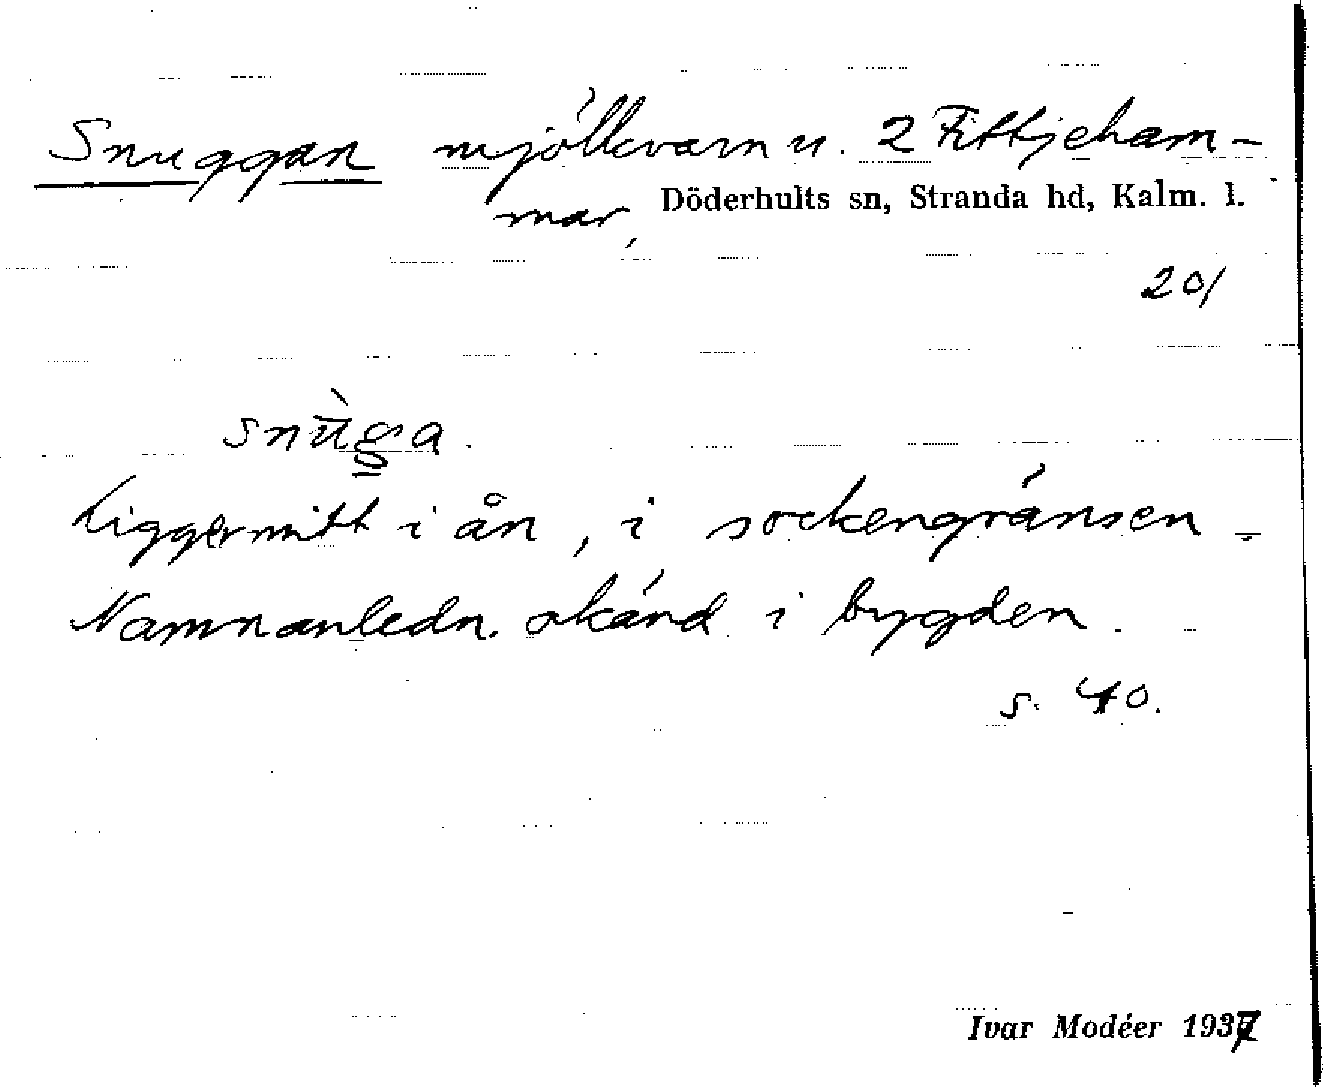 Snuggan mjölkvarn u. 2 Fittjeham-
mar,
Döderhults sn, Stranda hd, Kalm. l.
201
snùg̳a.
Ligger mitt i ån, i sockengränsen.
Namnanledn. okänd i bygden.
s. 40.
Ivar Modéer 1937